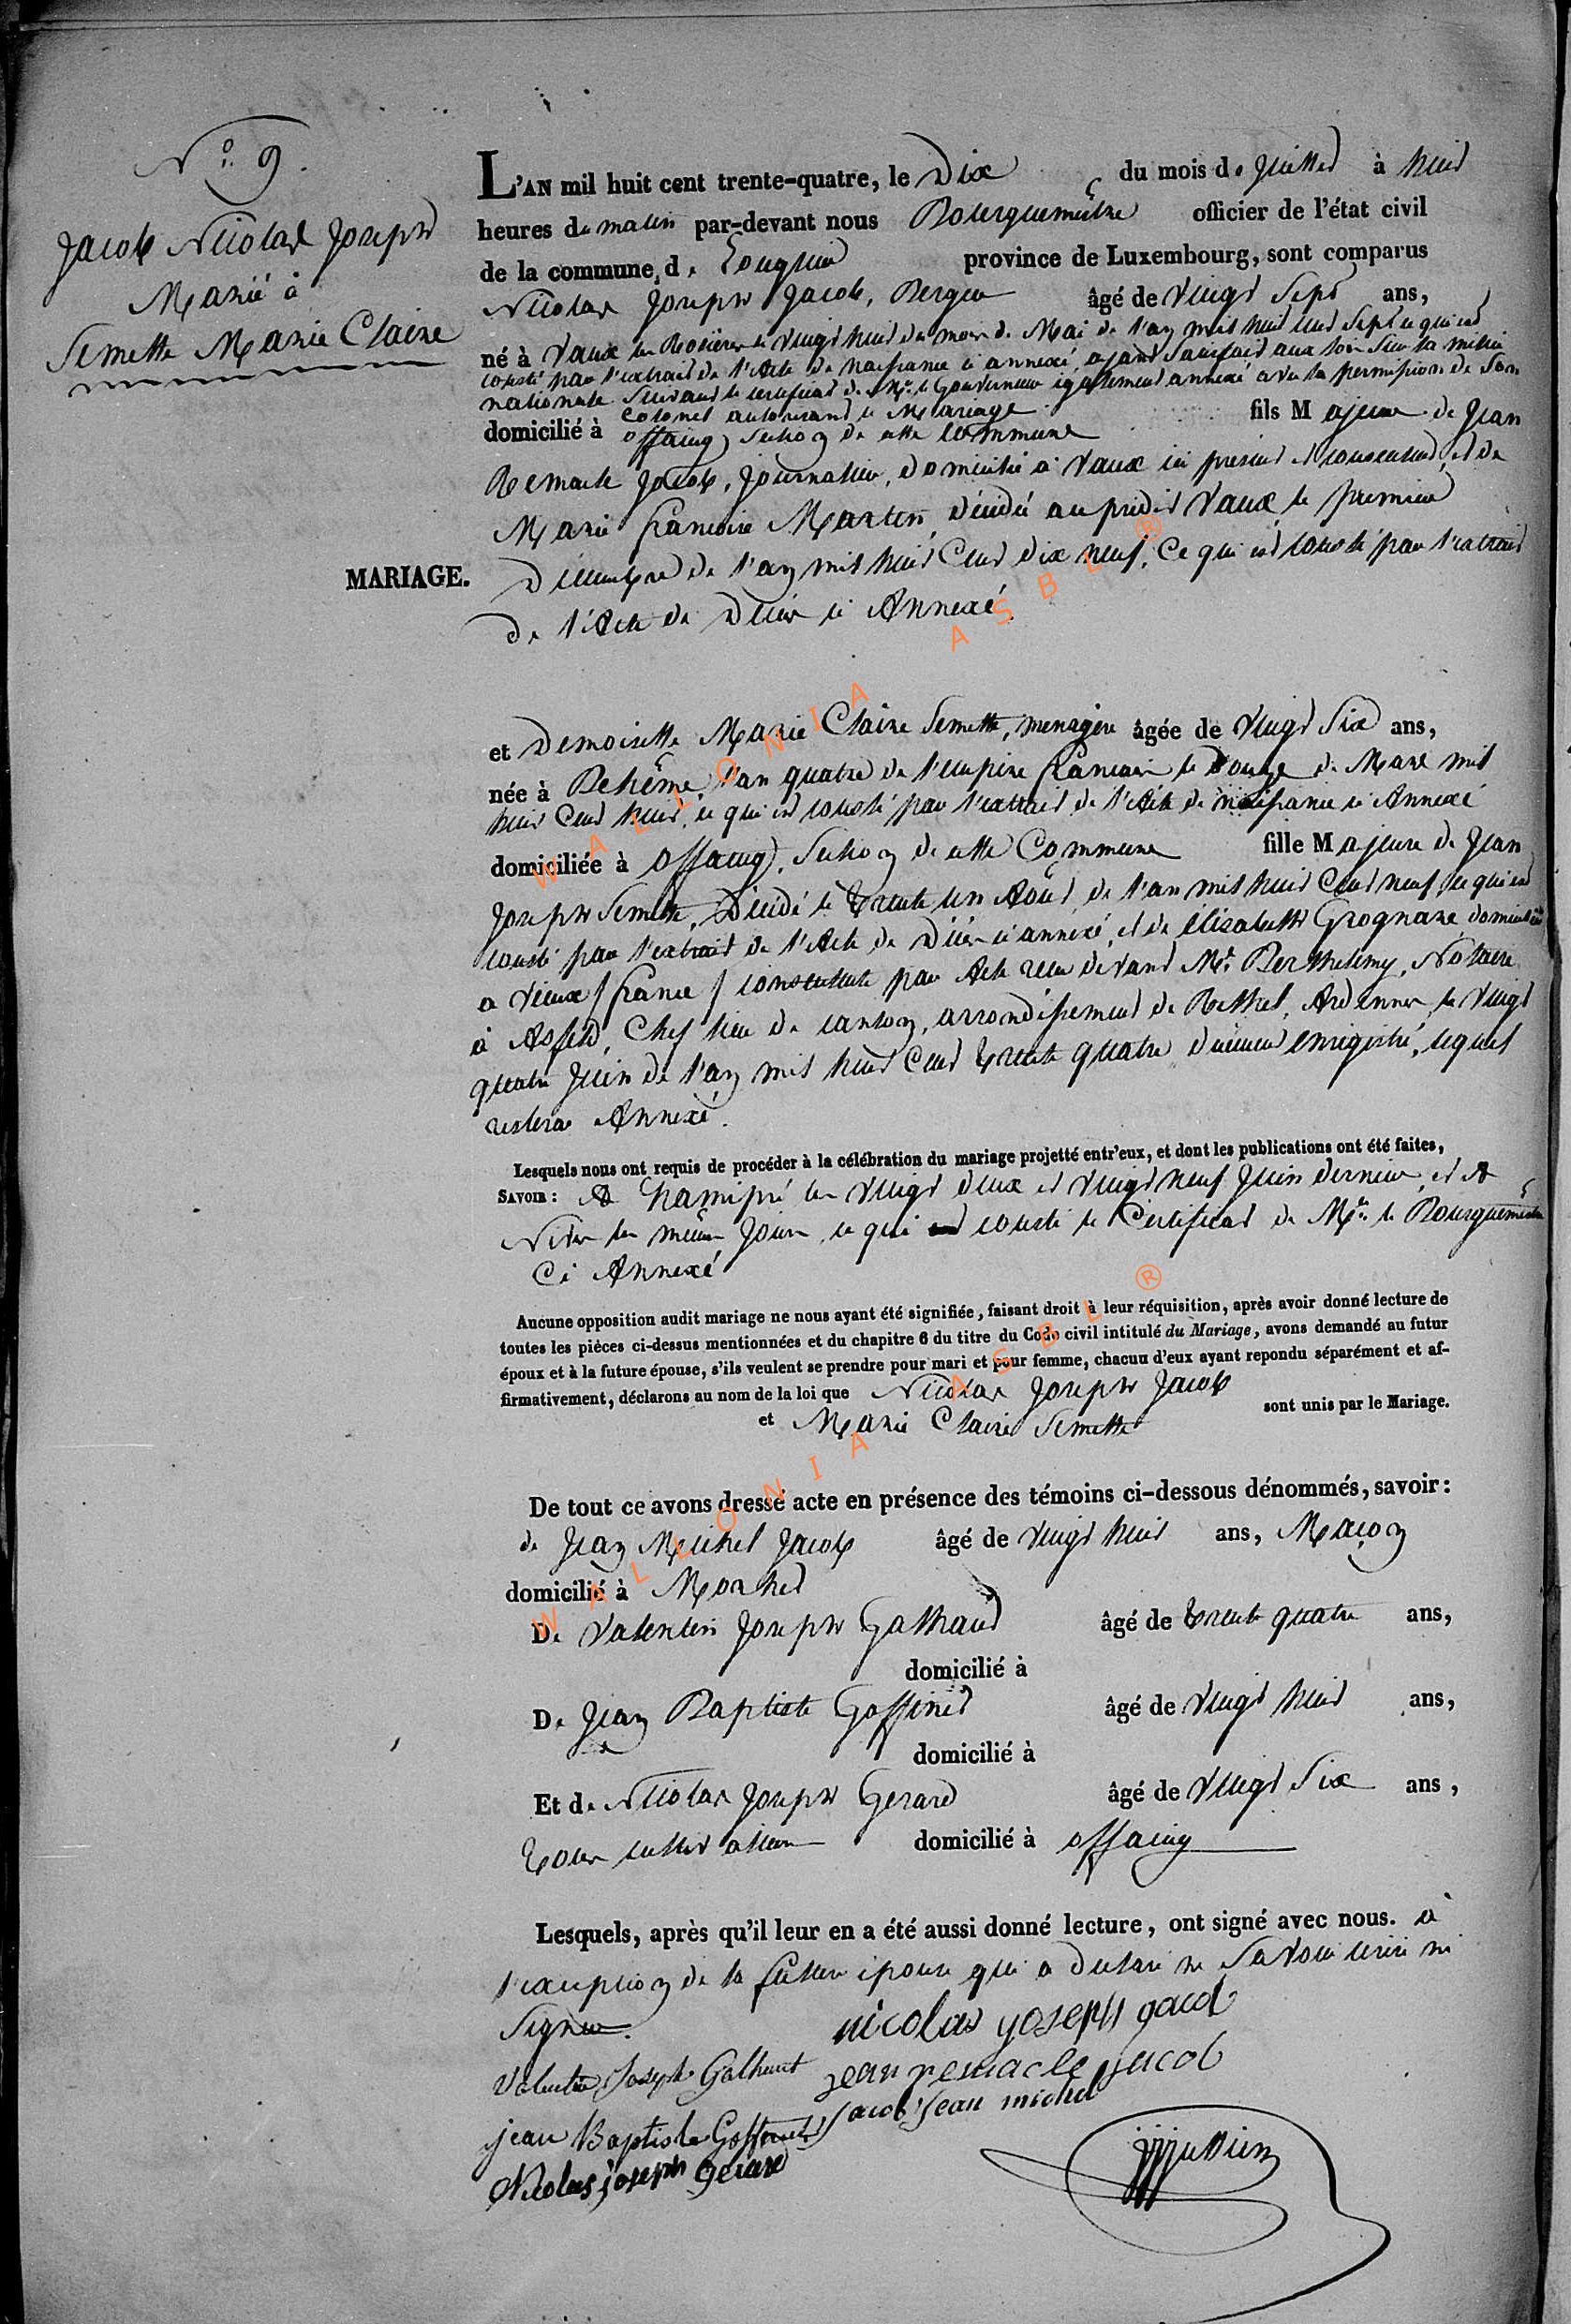 N° 9.
Jacob Nicolas Joseph
Marié à
Semette Marie Claire
MARIAGE.
L'AN mil huit cent trente-quatre, le Dix du mois de Juillet à huit
heures du matin par-devant nous Bourguemestre officier de l'état civil
de la commune de province de Luxembourg, sont comparus
Nicolas Joseph Jacob, Berger âgé de vingt Sept ans,
né à Vaux les Rosières le vingt huit du mois de Mai de l'an mil huit cent Sept ce qui est
constaté par l'extrait de l'Acte de naissance ci annexé, ayant Satisfait aux lois Sur la milice
nationale Suivant le certificat de Mr. le Gouverneur également annexé avec la permission de Son
Colonel autorisant le Mariage
domicilié à offaing Section de cette Commune fils Majeur de Jean
Remacle Jacob, Journalier, domicilié à Vaux ici présent et consentant, et de
Marie françoise Martin, décédée au predit Vaux le premier
Décembre de l'an mil huit Cent dix neuf, Ce qui est constaté par l'extrait
de l'Acte de Décès ci Annexé.
et Demoiselle Marie Claire Semette, menagère âgée de vingt Six ans,
née à Behême, l'an quatre de l'empire français le Douze de Mars mil
huit Cent huit, ce qui est constaté par l'extrait de l'Acte de naissance ci Annexé
domiciliée à offaing, Section de cette Commune fille Majeure de Jean
Joseph Semette, Décédé le trente un Août de l'an mil huit Cent neuf, ce qui est
constaté par l'extrait de l'Acte de Décès ci annexé, et de élisabeth Grognare domiciliée
a Vieux / france / consentante par Acte reçu devant Mr. Berthelemy, Notaire
à Asfeld, Chef lieu de canton, arrondissement de Rethel, Ardennes, le vingt
quatre Juin de l'an mil huit Cent trente quatre duement enregistré, lequel
restera Annexé.
Lesquels nous ont requis de procéder à la célébration du mariage projetté entr'eux, et dont les publications ont été faites,
SAVOIR : A hamipré les vingt deux et vingt neuf Juin dernier, et A
Nives les même Jours, ce qui est constaté le Certificat de Mr. le Bourguemestre
Ci Annexé
Aucune opposition audit mariage ne nous ayant été signifiée, faisant droit à leur réquisition, après avoir donné lecture de
toutes les pièces ci-dessus mentionnées et du chapitre 6 du titre du Code civil intitulé du Mariage, avons demandé au futur
époux et à la future épouse, s'ils veulent se prendre pour mari et pour femme, chacun d'eux ayant repondu séparément et af-
firmativement, déclarons au nom de la loi que Nicolas Joseph Jacob
et Marie Claire Semette sont unis par le Mariage.
De tout ce avons dressé acte en présence des témoins ci-dessous dénommés, savoir :
de Jean Michel Jacob âgé de vingt huit ans, Maçon
domicilié à Morhet
De Valentin Joseph Galhaut âgé de trente quatre ans,
domicilié à
De Jean Baptiste Goffinet âgé de vingt huit ans,
domicilié à
Et de Nicolas Joseph Gerard âgé de vingt Six ans,
tous cultivateurs domicilié à offaing
Lesquels, après qu'il leur en a été aussi donné lecture, ont signé avec nous. à
l'exception de la future épouse qui a declaré ne Savoir écrire ni
Signer.
nicolas joseph jacob
Valentin Joseph Galhaut
jean remacle jacob
jacob jean michel
jean Baptiste Goffinet
Nicolas joseph gerard
WALLONIA ASBL ®
WALLONIA ASBL ®